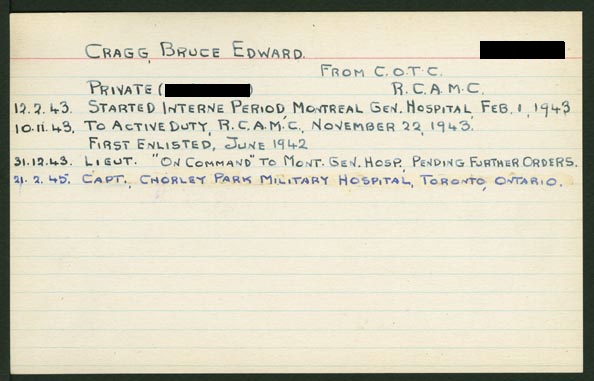 CRAGG, BRUCE EDWARD.
FROM C.O.T.C.
PRIVATE ( ) R.C.A.M.C.
12.2.43. STARTED INTERNE PERIOD, MONTREAL GEN. HOSPITAL FEB. 1, 1943
10.11.43. TO ACTIVE DUTY, R.C.A.M.C., NOVEMBER 22, 1943.
FIRST ENLISTED, JUNE 1942
31.12.43. LIEUT. "ON COMMAND" TO MONT. GEN. HOSP., PENDING FURTHER ORDERS.
21.2.45. CAPT., CHORLEY PARK MILITARY HOSPITAL, TORONTO, ONTARIO.